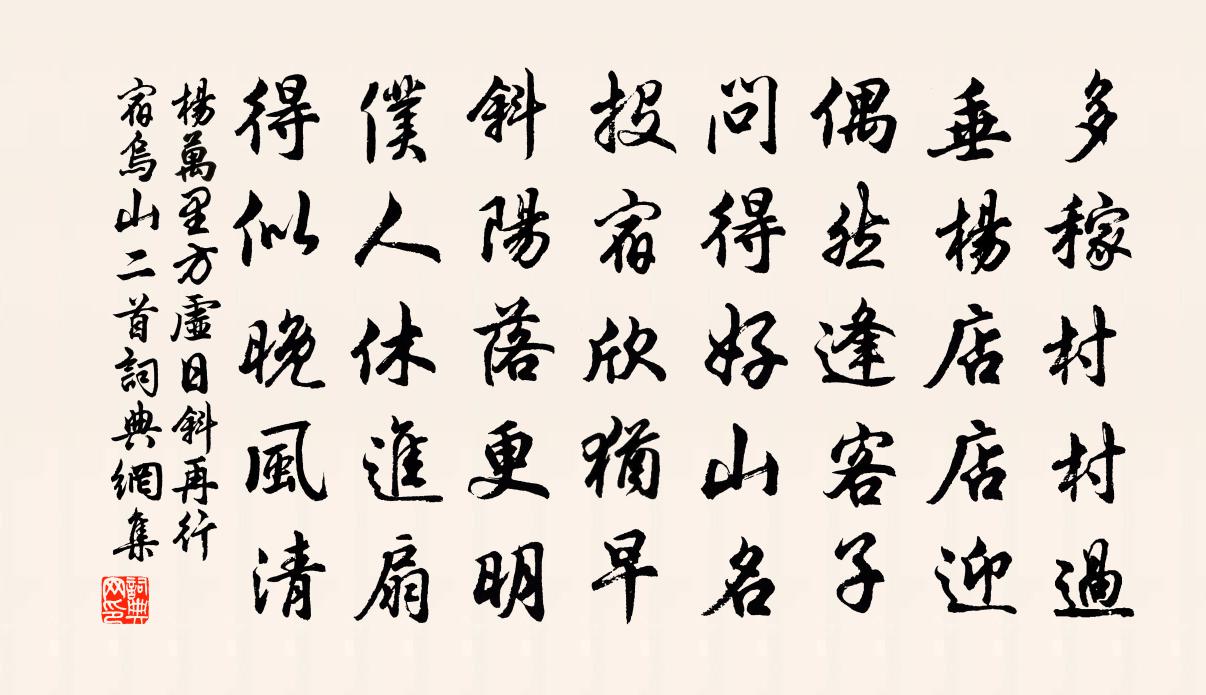 多稼村村過
垂楊店店迎
偶然逢客子
問得好山名
投宿欣猶早
斜陽落更明
僕人休進扇
得似晚風清
楊萬里方虛日斜再行
宿烏山二首詞典網集
詞典
网印